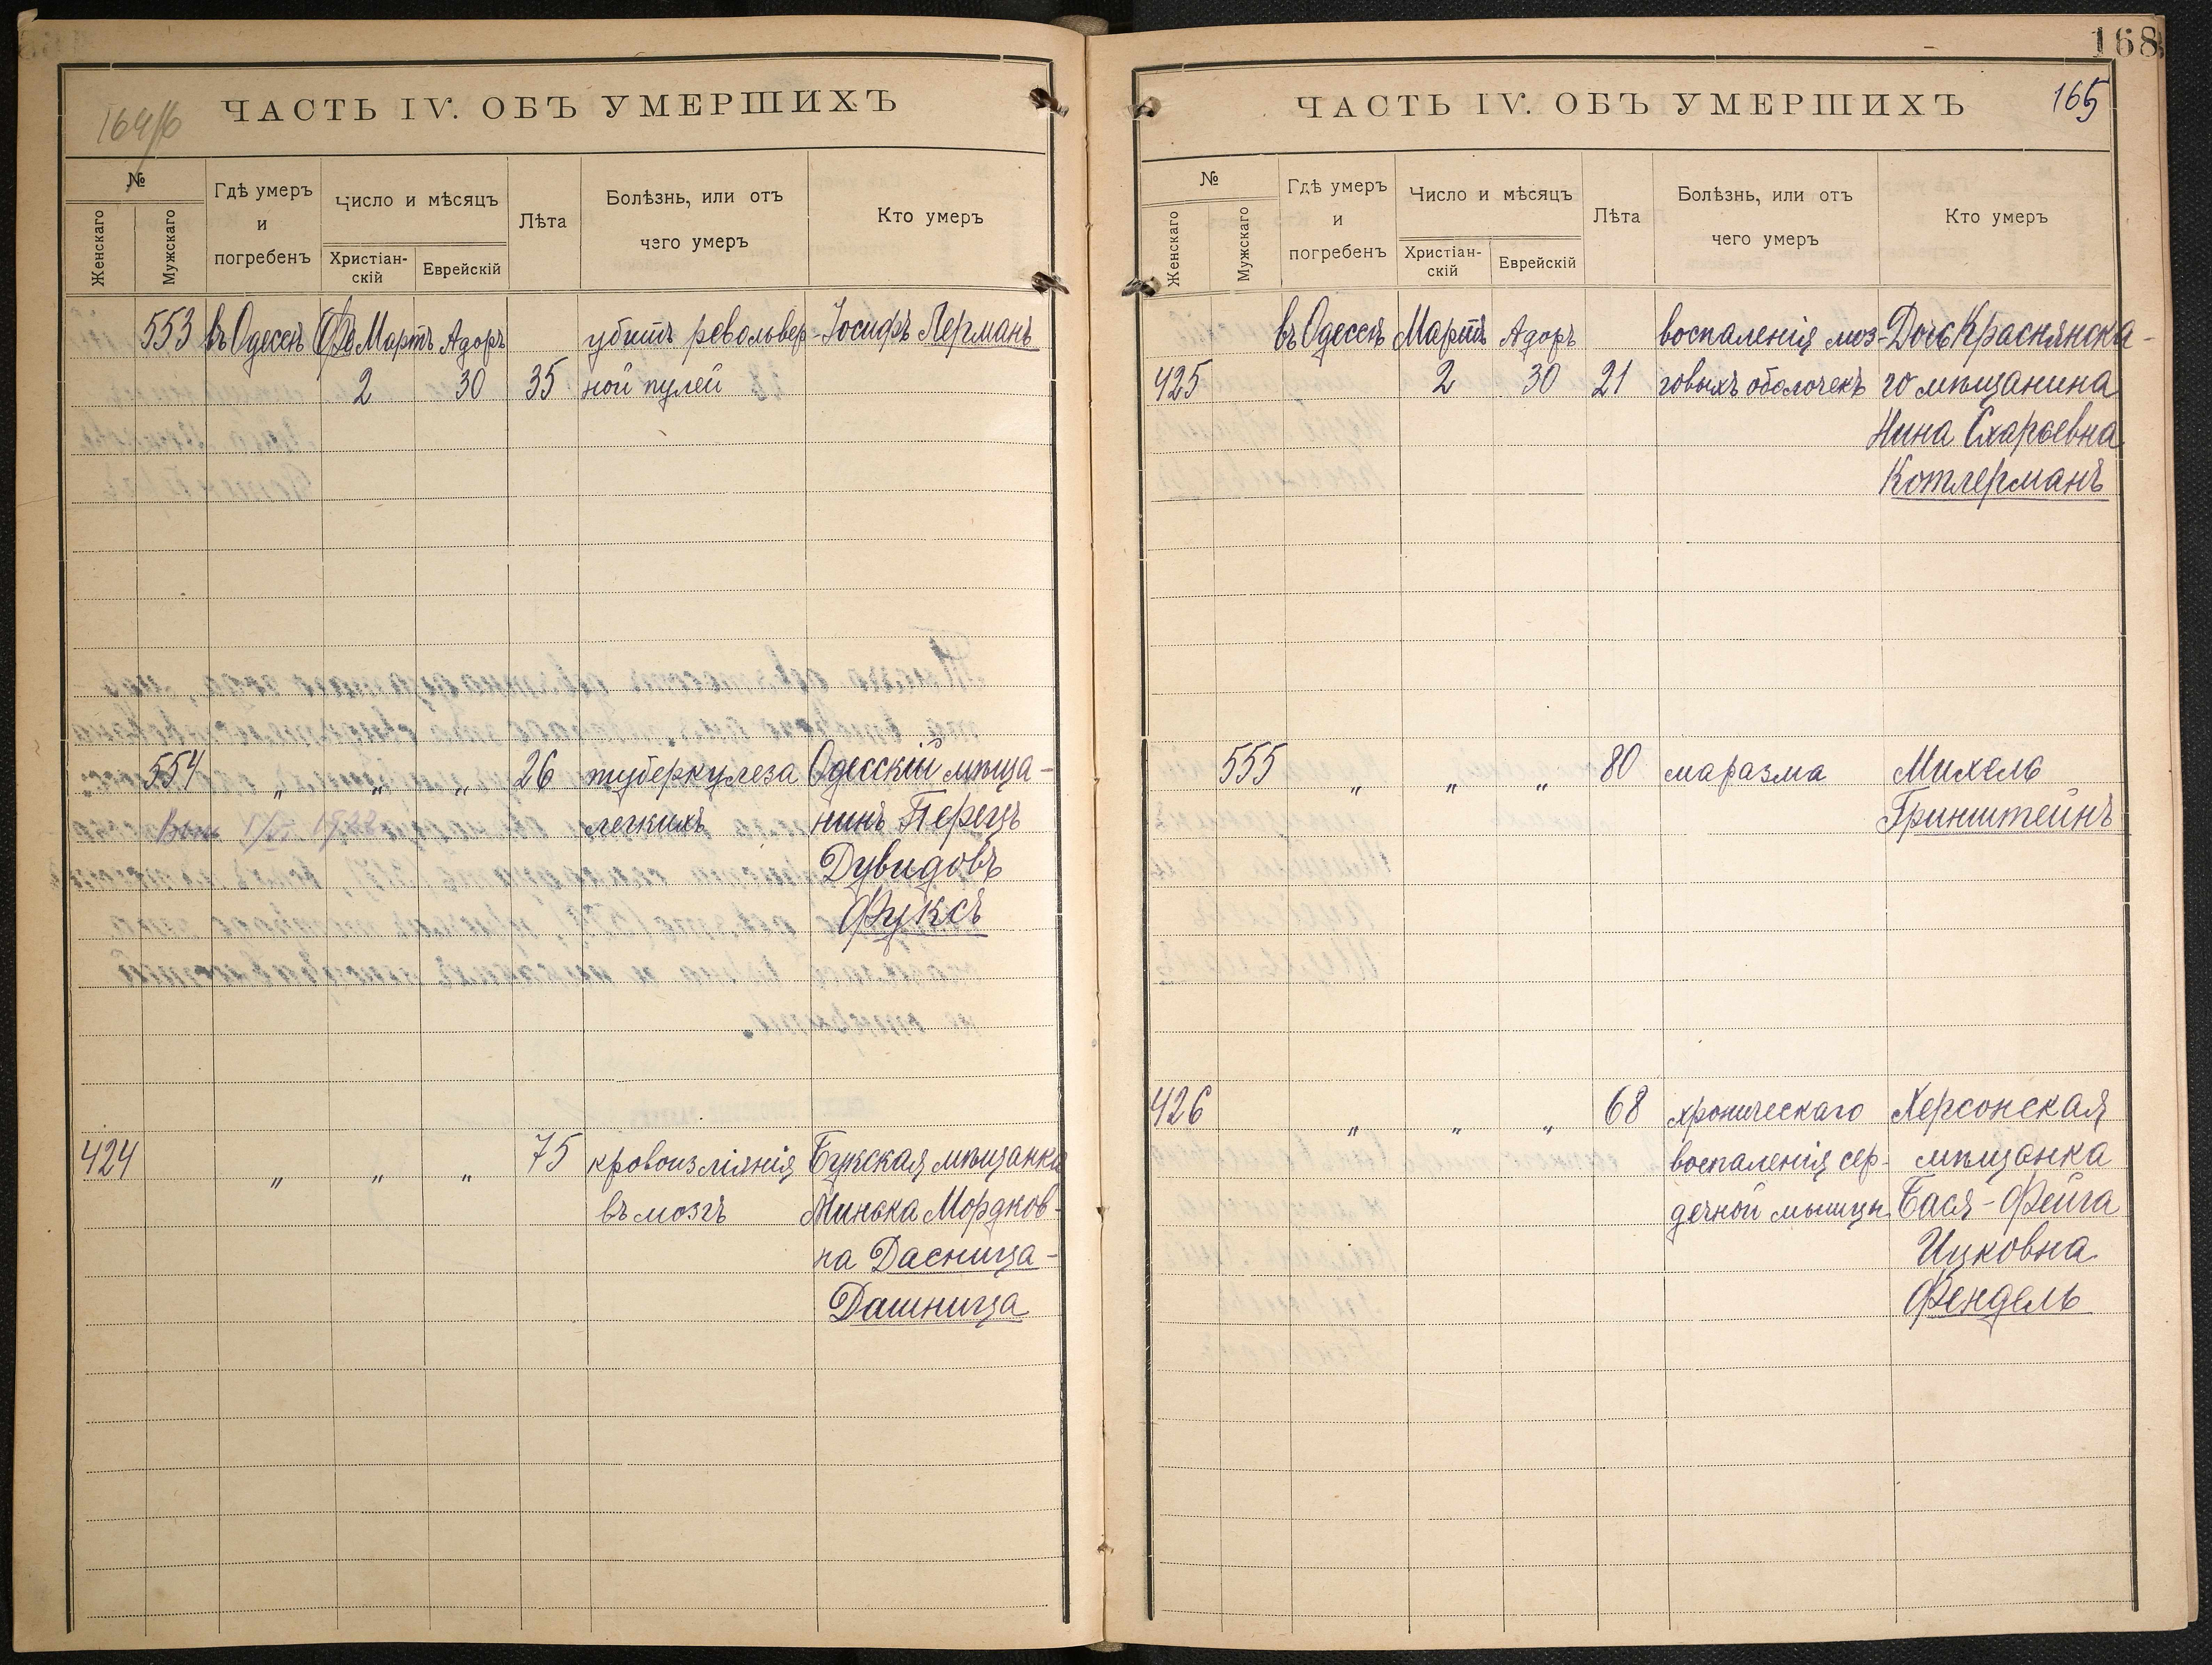 164/б
ЧАСТЬ IV. ОБЪ УМЕРШИХЪ
№
Женскаго
Мужскаго
Гдѣ умеръ
и
погребенъ
Число и мѣсяцъ
Христіан-
скій
Еврейскій
Лѣта
Болѣзнь, или отъ
чего умеръ
Кто умеръ
553 въ Одессѣ (Фе Мартъ Адоръ убитъ револьвер- Іосифъ Лерманъ
2 30 35 ной пулей
554 „ „ „ 26 туберкулеза Одесскій мѣща-
1922 легкихъ нинъ Перецъ
Дувидовъ
Фуксъ
424 „ „ „ 75 кровоизліянія Бужская мѣщанка
въ мозгъ Минька Мордков-
на Дасница-
Дашница
168
ЧАСТЬ IV. ОБЪ УМЕРШИХЪ
165
№
Женскаго
Мужскаго
Гдѣ умеръ
и
погребенъ
Число и мѣсяцъ
Христіан-
скій
Еврейскій
Лѣта
Болѣзнь, или отъ
чего умеръ
Кто умеръ
въ Одессѣ Мартъ Адоръ воспаленія моз- Дочь Краснянска-
425 2 30 21 говыхъ оболочекъ го мѣщанина
Нина Схаріевна
Котлерманъ
555 „ „ „ 80 маразма Михель
Гринштейнъ
426 „ „ „ 68 хроническаго Херсонская
воспаленія сер- мѣщанка
дечной мышцы Бася-Фейга
Ицковна
Фендель